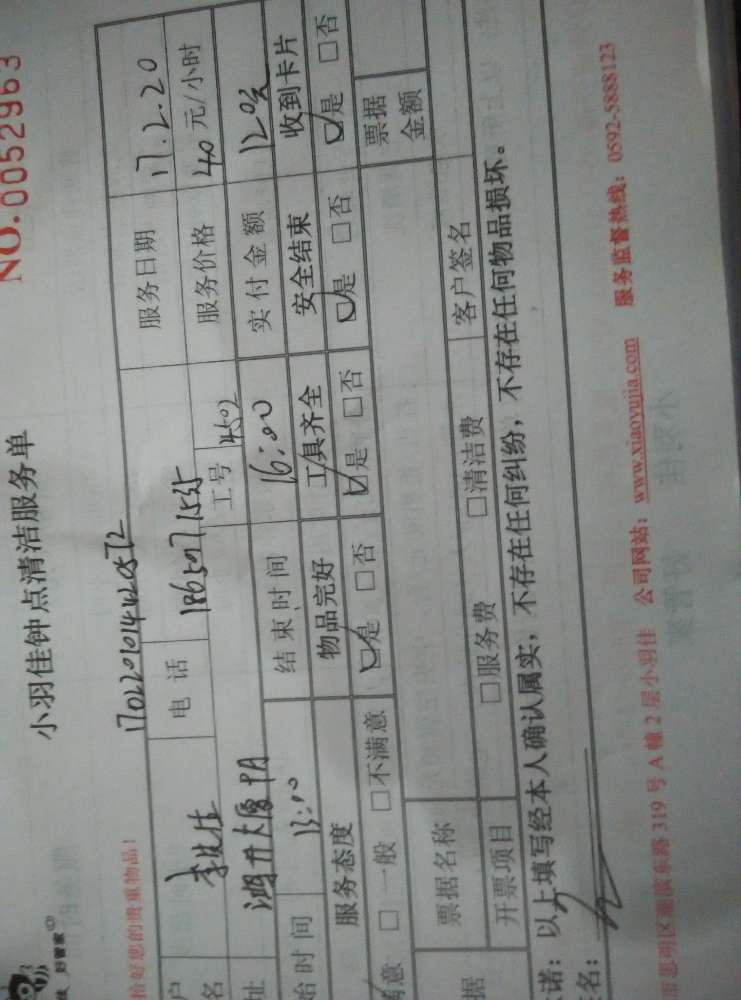 NO.0052963
小羽佳钟点清洁服务单
好管家
恰好您的贵重物品！
电话 服务日期 17.2.20
工号 4502 服务价格 40 元/小时
始时间 13:00 结束时间 16:00 实付金额 120元
服务态度 物品完好 工具齐全 安全结束 收到卡片
意 □一般 □不满意 ☑是 □否 ☑是 □否 ☑是 □否 ☑是 □否
据 票据名称 票据金额
开票项目 □服务费 □清洁费 客户签名
诺：以上填写经本人确认属实，不存在任何纠纷，不存在任何物品损坏。
名：
市思明区湖滨东路 319 号 A 幢 2 层小羽佳 公司网站：www.xiaoyujia.com 服务监督热线：0592-5888123